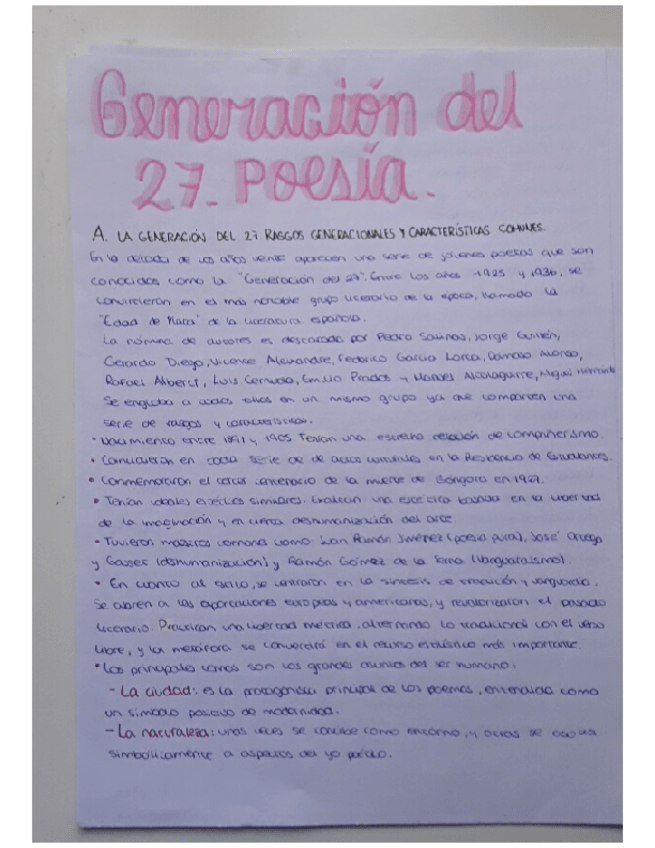 Generación del
27. Poesía.
A. LA GENERACIÓN DEL 27. RASGOS GENERACIONALES Y CARACTERÍSTICAS COMUNES.
En la década de los años veinte aparecen una serie de jóvenes poetas que son
conocidos como la "Generación del 27". Entre los años 1925 y 1936, se
convirtieron en el más notable grupo literario de la época, llamado la
"Edad de Plata" de la literatura española.
La nómina de autores es destacada por Pedro Salinas, Jorge Guillén,
Gerardo Diego, Vicente Aleixandre, Federico García Lorca, Dámaso Alonso,
Rafael Alberti, Luis Cernuda, Emilio Prados y Manuel Altolaguirre, Miguel Hernández
Se engloba a todos ellos en un mismo grupo ya que comparten una
serie de rasgos y características.
· Nacimiento entre 1891 y 1905 Tenían una estrecha relación de compañerismo.
• Convivieron en toda serie de de actos culturales en la Residencia de Estudiantes.
• Conmemoraron el tercer centenario de la muerte de Góngora en 1927.
• Tenían ideales estéticos similares. una estética basada en la libertad
de la imaginación y en cierta deshumanización del arte.
- Tuvieron maestros comunes como: Juan Ramón Jiménez (poesía pura), José Ortega
y Gasset (deshumanización) y Ramón Gómez de la Serna (Vanguardismo)
• En cuanto al estilo, se centraron en la síntesis de tradición y vanguardia.
Se abren a las aportaciones europeas y americanas, y revalorizaron el pasado
literario. Practican una libertad métrica, alternando lo tradicional con el verso
libre, y la metáfora se convertirá en el recurso estilístico más importante.
• Los principales temas son los grandes asuntos del ser humano:
- La ciudad: es la protagonista principal de los poemas, entendida como
un símbolo positivo de modernidad.
- La naturaleza: unas veces se concibe como entorno, y otras se asocia
simbólicamente a aspectos del yo poético.